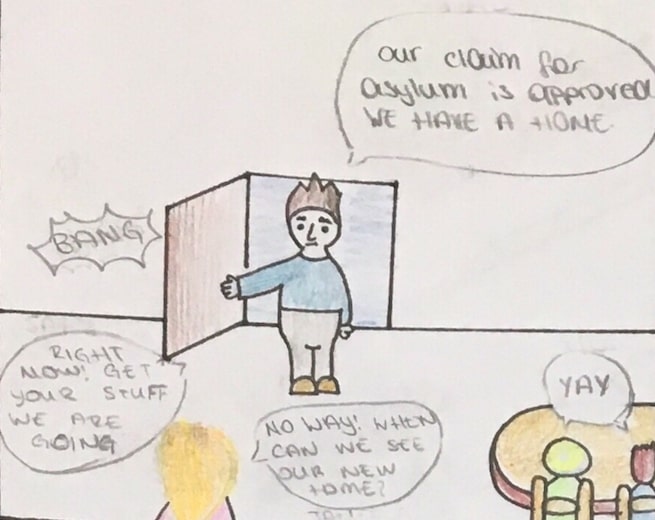 our claim for
asylum is approved
WE HAVE A HOME
BANG
RIGHT
NOW! GET
your STUFF
WE ARE
GOING
NO WAY! WHEN
CAN WE SEE
OUR NEW
HOME?
YAY